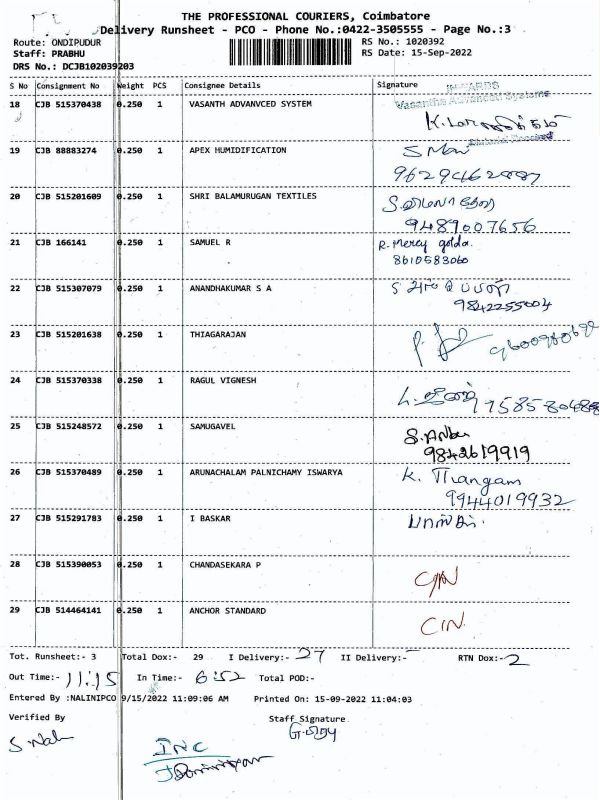 THE PROFESSIONAL COURIERS, Coimbatore
Delivery Runsheet - PCO - Phone No.:0422-3505555 - Page No.:3
Route: ONDIPUDUR RS No.: 1020392
Staff: PRABHU RS Date: 15-Sep-2022
DRS No.: DCJB102039203
S No Consignment No Weight PCS Consignee Details Signature
18 CJB 515370438 0.250 1 VASANTH ADVANVCED SYSTEM
Vasantha Advanced Systems
19 CJB 88883274 0.250 1 APEX HUMIDIFICATION S
20 CJB 515201609 0.250 1 SHRI BALAMURUGAN TEXTILES
9489007656
21 CJB 166141 0.250 1 SAMUEL R R. Mercy golda.
8610583060
22 CJB 515307079 0.250 1 ANANDHAKUMAR S A
9842255004
23 CJB 515201638 0.250 1 THIAGARAJAN
24 CJB 515370338 0.250 1 RAGUL VIGNESH
25 CJB 515248572 0.250 1 SAMUGAVEL S.
9842619919
26 CJB 515370489 0.250 1 ARUNACHALAM PALNICHAMY ISWARYA K. Thangam
9944019932
27 CJB 515291783 0.250 1 I BASKAR
28 CJB 515390053 0.250 1 CHANDASEKARA P
29 CJB 514464141 0.250 1 ANCHOR STANDARD CIN
Tot. Runsheet:- 3 Total Dox:- 29 I Delivery:- 27 II Delivery:- - RTN Dox:- 2
Out Time:- 11:15 In Time:- 6:52 Total POD:-
Entered By :NALINIPCO 9/15/2022 11:09:06 AM Printed On: 15-09-2022 11:04:03
Verified By Staff Signature
INC